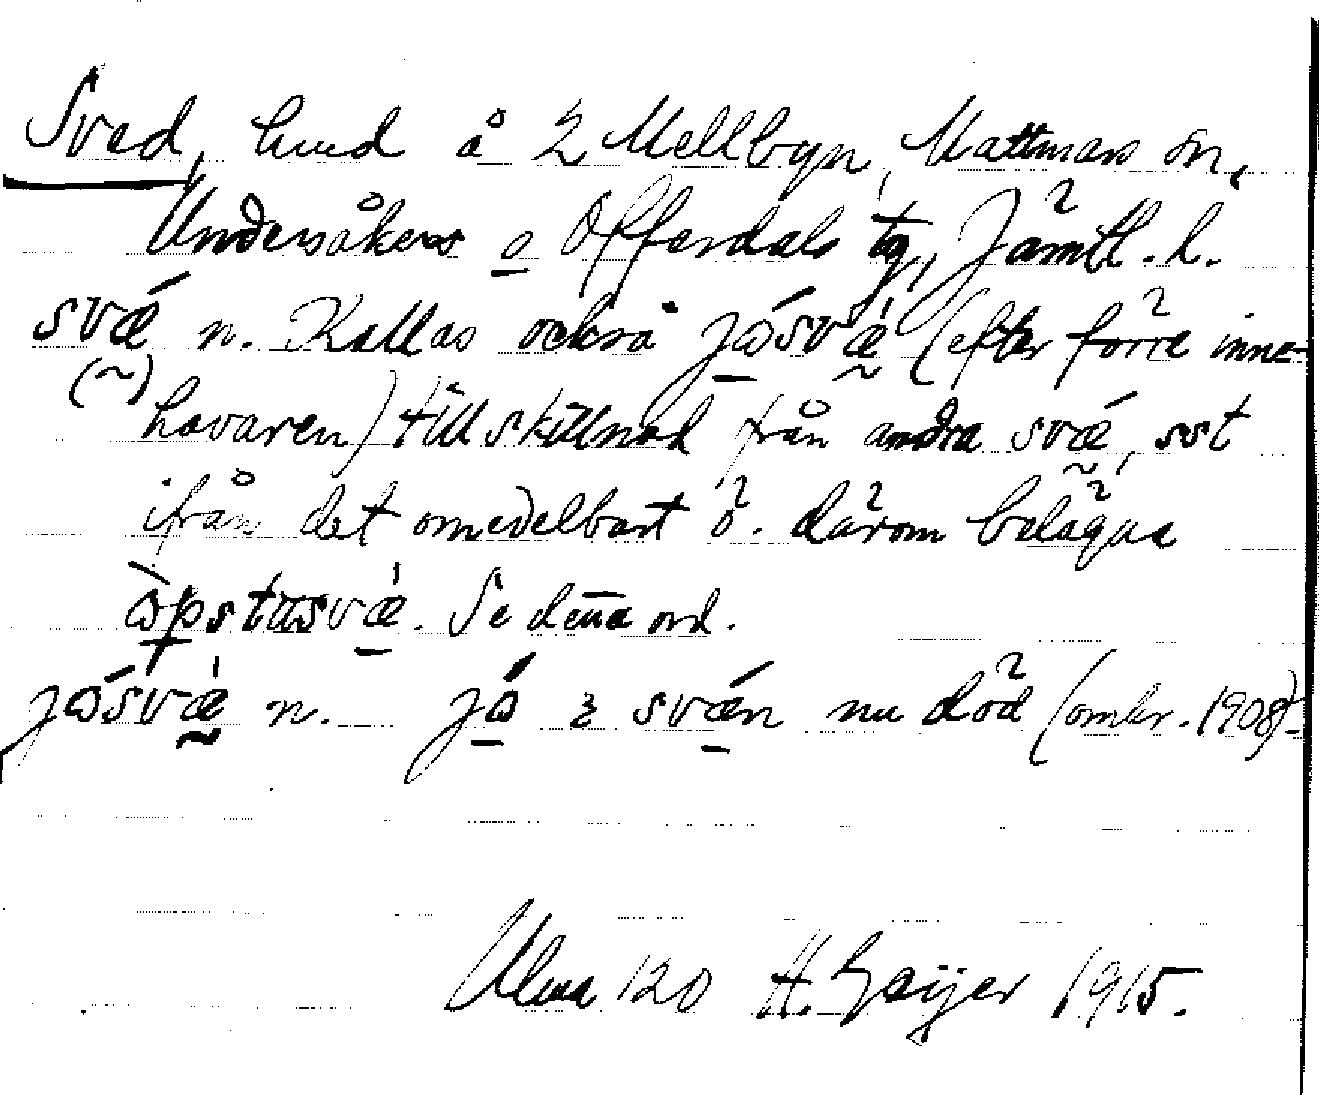 Sved, hmd å 2 Mellbyn, Mattmars sn,
Undersåkers o Offerdals tg, Jämtl. l.
svǽ n. Kallas också jɷ́svǽ (efter förre inne-
(~) havaren) till skillnad från andra svǽ, sst
ifrån det omedelbart ö. därom belägna
ɷ̀pstusvæ̍. Se deña ord.
jɷ́svæ̍ n. jɷ́ svǽn nu död (omkr. 1908)-
Ulma 120 H. Geijer 1915.